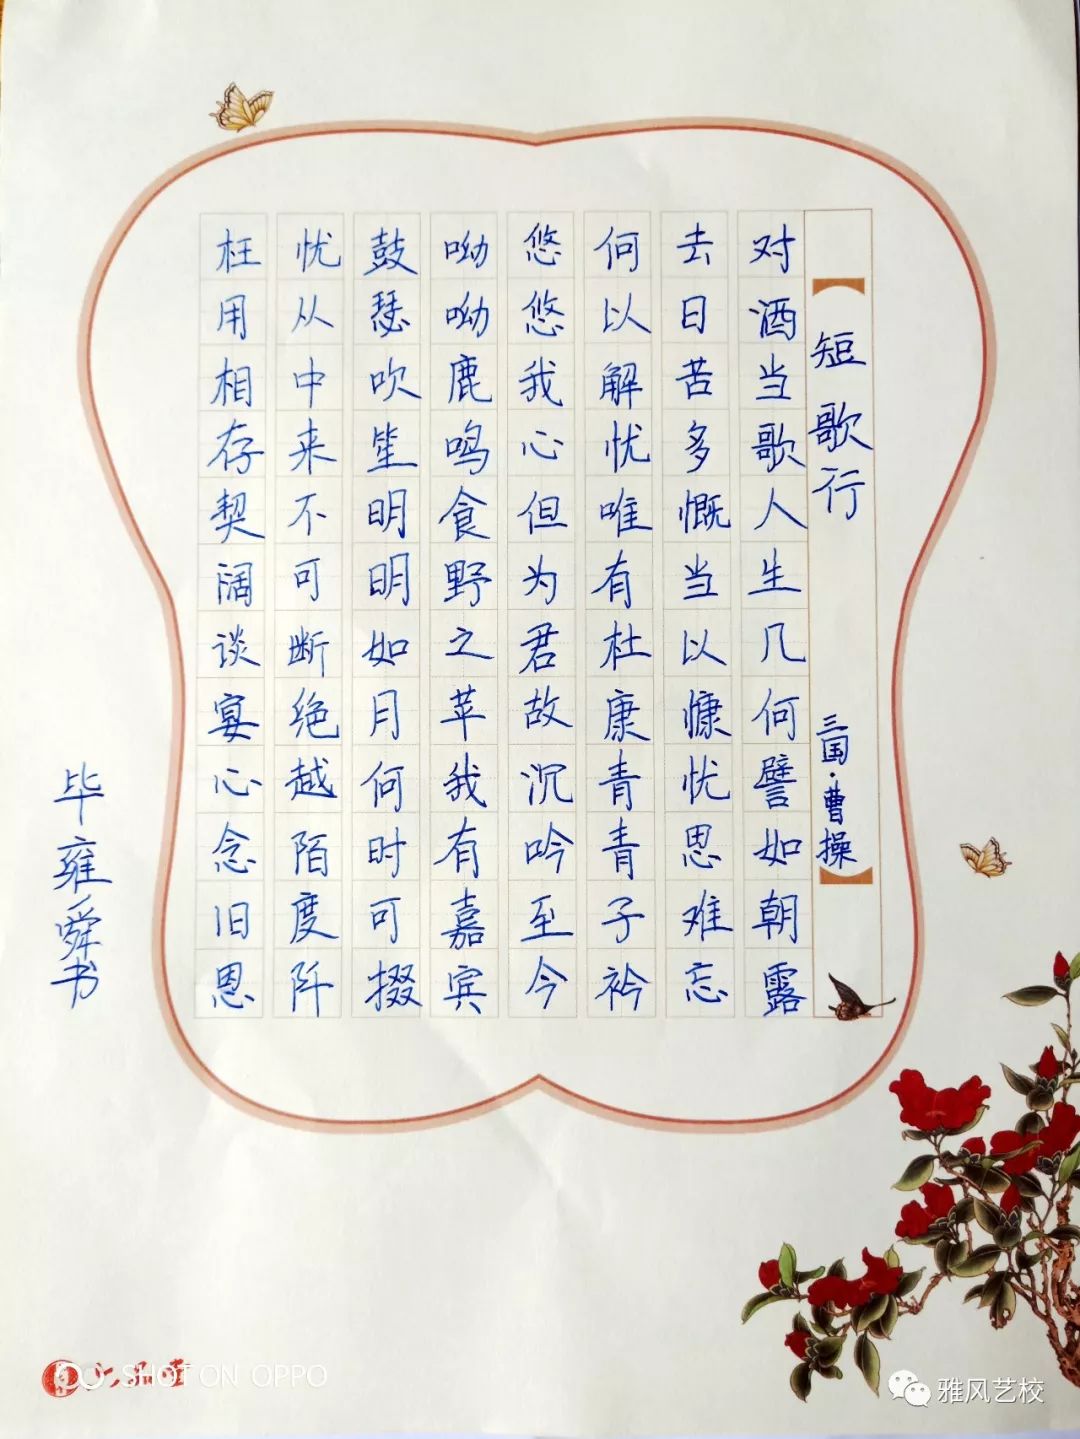 短歌行 三国·曹操
对酒当歌人生几何譬如朝露
去日苦多慨当以慷忧思难忘
何以解忧唯有杜康青青子衿
悠悠我心但为君故沉吟至今
呦呦鹿鸣食野之苹我有嘉宾
鼓瑟吹笙明明如月何时可掇
忧从中来不可断绝越陌度阡
枉用相存契阔谈宴心念旧恩
毕雍舜书
SHOT ON OPPO
雅风艺校